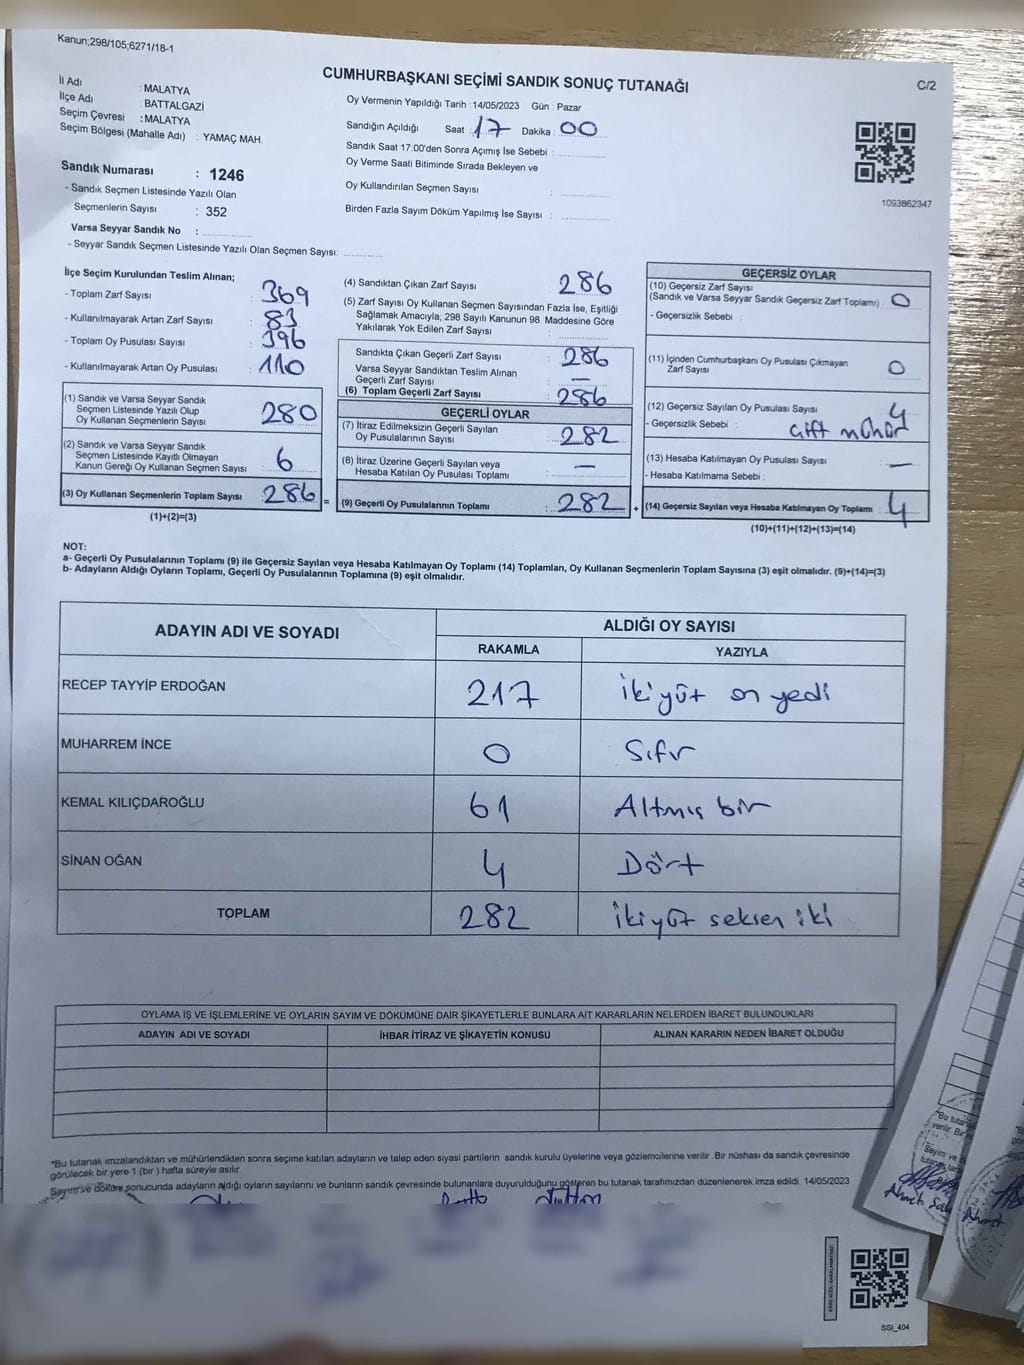 Kanun;298/105;6271/18-1
CUMHURBAŞKANI SEÇİMİ SANDIK SONUÇ TUTANAĞI
C/2
İl Adı : MALATYA
İlçe Adı : BATTALGAZİ
Seçim Çevresi : MALATYA
Seçim Bölgesi (Mahalle Adı) : YAMAÇ MAH.
Oy Vermenin Yapıldığı Tarih :14/05/2023 Gün : Pazar
Sandığın Açıldığı Saat : 17 Dakika : 00
Sandık Saat 17.00'den Sonra Açımış İse Sebebi :
Oy Verme Saati Bitiminde Sırada Bekleyen ve
Oy Kullandırılan Seçmen Sayısı :
Birden Fazla Sayım Döküm Yapılmış İse Sayısı :
1093862347
Sandık Numarası : 1246
- Sandık Seçmen Listesinde Yazılı Olan
Seçmenlerin Sayısı : 352
Varsa Seyyar Sandık No :
- Seyyar Sandık Seçmen Listesinde Yazılı Olan Seçmen Sayısı:
İlçe Seçim Kurulundan Teslim Alınan;
- Toplam Zarf Sayısı : 369
- Kullanılmayarak Artan Zarf Sayısı : 83
- Toplam Oy Pusulası Sayısı : 396
- Kullanılmayarak Artan Oy Pusulası : 110
(1) Sandık ve Varsa Seyyar Sandık
Seçmen Listesinde Yazılı Olup
Oy Kullanan Seçmenlerin Sayısı : 280
(2) Sandık ve Varsa Seyyar Sandık
Seçmen Listesinde Kayıtlı Olmayan
Kanun Gereği Oy Kullanan Seçmen Sayısı : 6
(3) Oy Kullanan Seçmenlerin Toplam Sayısı : 286 =
(1)+(2)=(3)
(4) Sandıktan Çıkan Zarf Sayısı : 286
(5) Zarf Sayısı Oy Kullanan Seçmen Sayısından Fazla İse, Eşitliği
Sağlamak Amacıyla; 298 Sayılı Kanunun 98. Maddesine Göre
Yakılarak Yok Edilen Zarf Sayısı :
Sandıkta Çıkan Geçerli Zarf Sayısı : 286
Varsa Seyyar Sandıktan Teslim Alınan
Geçerli Zarf Sayısı : —
(6) Toplam Geçerli Zarf Sayısı : 286
GEÇERLİ OYLAR
(7) İtiraz Edilmeksizin Geçerli Sayılan
Oy Pusulalarının Sayısı : 282
(8) İtiraz Üzerine Geçerli Sayılan veya
Hesaba Katılan Oy Pusulası Toplamı : —
(9) Geçerli Oy Pusulalarının Toplamı : 282 +
GEÇERSİZ OYLAR
(10) Geçersiz Zarf Sayısı
(Sandık ve Varsa Seyyar Sandık Geçersiz Zarf Toplamı) : 0
- Geçersizlik Sebebi :
(11) İçinden Cumhurbaşkanı Oy Pusulası Çıkmayan
Zarf Sayısı : 0
(12) Geçersiz Sayılan Oy Pusulası Sayısı : 4
- Geçersizlik Sebebi : çift mühür
(13) Hesaba Katılmayan Oy Pusulası Sayısı : —
- Hesaba Katılmama Sebebi :
(14) Geçersiz Sayılan veya Hesaba Katılmayan Oy Toplamı : 4
(10)+(11)+(12)+(13)=(14)
NOT:
a- Geçerli Oy Pusulalarının Toplamı (9) ile Geçersiz Sayılan veya Hesaba Katılmayan Oy Toplamı (14) Toplamları, Oy Kullanan Seçmenlerin Toplam Sayısına (3) eşit olmalıdır. (9)+(14)=(3)
b- Adayların Aldığı Oyların Toplamı, Geçerli Oy Pusulalarının Toplamına (9) eşit olmalıdır.
ADAYIN ADI VE SOYADI
ALDIĞI OY SAYISI
RAKAMLA YAZIYLA
RECEP TAYYİP ERDOĞAN 217 İkiyüz on yedi
MUHARREM İNCE 0 Sıfır
KEMAL KILIÇDAROĞLU 61 Altmış bir
SİNAN OĞAN 4 Dört
TOPLAM 282 İkiyüz seksen iki
OYLAMA İŞ VE İŞLEMLERİNE VE OYLARIN SAYIM VE DÖKÜMÜNE DAİR ŞİKAYETLERLE BUNLARA AİT KARARLARIN NELERDEN İBARET BULUNDUKLARI
ADAYIN ADI VE SOYADI İHBAR İTİRAZ VE ŞİKAYETİN KONUSU ALINAN KARARIN NEDEN İBARET OLDUĞU
"Bu tutanak imzalandıktan ve mühürlendikten sonra seçime katılan adayların ve talep eden siyasi partilerin sandık kurulu üyelerine veya gözlemcilerine verilir. Bir nüshası da sandık çevresinde
görülecek bir yere 1 (bir) hafta süreyle asılır.
Sayım ve döküm sonucunda adayların aldığı oyların sayılarını ve bunların sandık çevresinde bulunanlara duyurulduğunu gösteren bu tutanak tarafımızdan düzenlenerek imza edildi. 14/05/2023
SSI_404
"Bu tutanak
verilir. Bir
Sayım ve
Ahmet
Ahmet